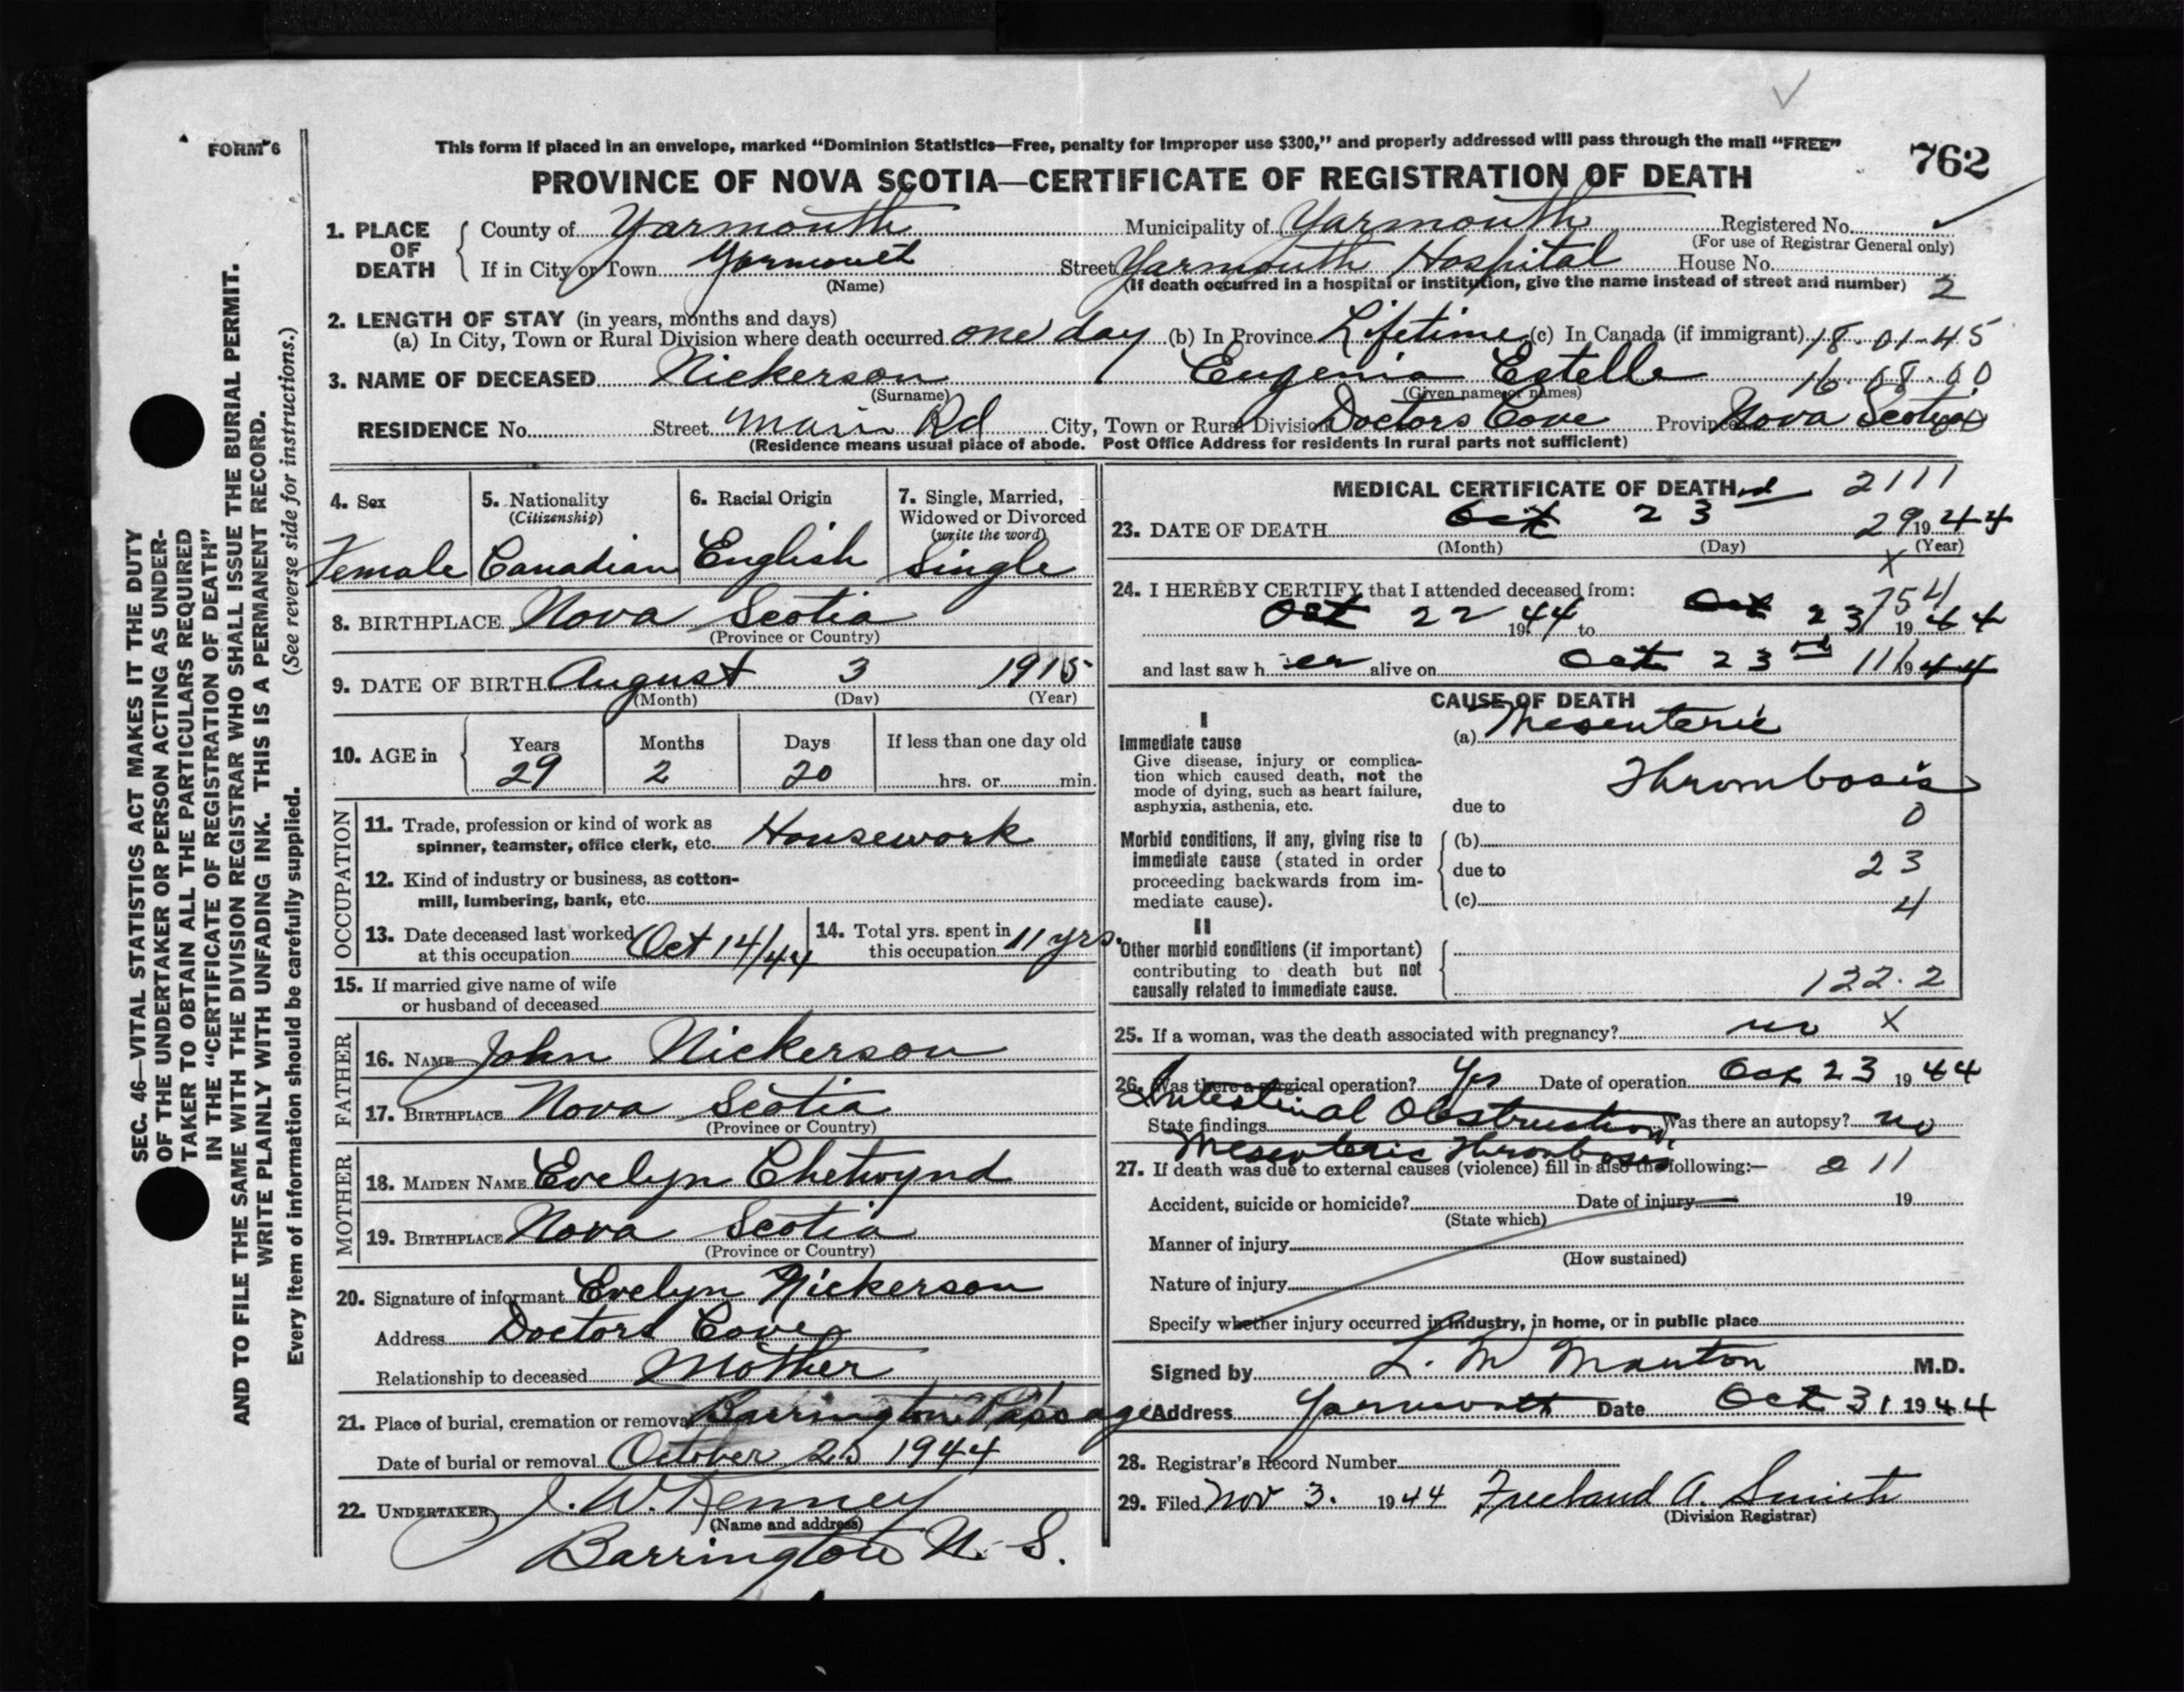 FORM 6
This form if placed in an envelope, marked "Dominion Statistics—Free, penalty for improper use $300," and properly addressed will pass through the mail "FREE"
762
PROVINCE OF NOVA SCOTIA—CERTIFICATE OF REGISTRATION OF DEATH
1. PLACE OF DEATH
County of Yarmouth Municipality of Yarmouth Registered No.
(For use of Registrar General only)
If in City or Town Yarmouth Street Yarmouth Hospital House No.
(Name) (If death occurred in a hospital or institution, give the name instead of street and number) 2
2. LENGTH OF STAY (in years, months and days)
(a) In City, Town or Rural Division where death occurred one day (b) In Province Lifetime (c) In Canada (if immigrant) 18-01-45
3. NAME OF DECEASED Nickerson Eugenia Estelle 16-08-00
(Surname) (Given name or names)
RESIDENCE No. Street Main Rd City, Town or Rural Division Doctors Cove Province Nova Scotia
(Residence means usual place of abode. Post Office Address for residents in rural parts not sufficient)
SEC. 46—VITAL STATISTICS ACT MAKES IT THE DUTY
OF THE UNDERTAKER OR PERSON ACTING AS UNDER-
TAKER TO OBTAIN ALL THE PARTICULARS REQUIRED
IN THE "CERTIFICATE OF REGISTRATION OF DEATH"
AND TO FILE THE SAME WITH THE DIVISION REGISTRAR WHO SHALL ISSUE THE BURIAL PERMIT.
WRITE PLAINLY WITH UNFADING INK. THIS IS A PERMANENT RECORD.
Every item of information should be carefully supplied. (See reverse side for instructions.)
4. Sex
Female
5. Nationality
(Citizenship)
Canadian
6. Racial Origin
English
7. Single, Married,
Widowed or Divorced
(write the word)
Single
8. BIRTHPLACE Nova Scotia
(Province or Country)
9. DATE OF BIRTH August 3 1915
(Month) (Day) (Year)
10. AGE in Years Months Days If less than one day old
29 2 20 hrs. or min.
OCCUPATION
11. Trade, profession or kind of work as
spinner, teamster, office clerk, etc. Housework
12. Kind of industry or business, as cotton-
mill, lumbering, bank, etc.
13. Date deceased last worked
at this occupation Oct 14/44
14. Total yrs. spent in
this occupation 11 yrs.
15. If married give name of wife
or husband of deceased
FATHER
16. NAME John Nickerson
17. BIRTHPLACE Nova Scotia
(Province or Country)
MOTHER
18. MAIDEN NAME Evelyn Chetwynd
19. BIRTHPLACE Nova Scotia
(Province or Country)
20. Signature of informant Evelyn Nickerson
Address Doctors Cove
Relationship to deceased Mother
21. Place of burial, cremation or removal Barrington Passage
Date of burial or removal October 25 1944
22. UNDERTAKER J. W. Kenney
(Name and address)
Barrington N. S.
MEDICAL CERTIFICATE OF DEATH 2111
23. DATE OF DEATH Oct 23rd 29 1944
(Month) (Day) (Year)
X
24. I HEREBY CERTIFY that I attended deceased from: 754
Oct 22 1944 to Oct 23 1944
and last saw her alive on Oct 23rd 11 1944
CAUSE OF DEATH
I
Immediate cause
Give disease, injury or complica-
tion which caused death, not the
mode of dying, such as heart failure,
asphyxia, asthenia, etc.
(a) Mesenteric
Thrombosis
due to 0
Morbid conditions, if any, giving rise to
immediate cause (stated in order
proceeding backwards from im-
mediate cause).
(b)
due to 23
(c) 4
II
Other morbid conditions (if important)
contributing to death but not
causally related to immediate cause.
122.2
25. If a woman, was the death associated with pregnancy? no X
26. Was there a surgical operation? Yes Date of operation Oct 23 1944
State findings Intestinal Obstruction Was there an autopsy? no
Mesenteric Thrombosis
27. If death was due to external causes (violence) fill in also the following:— 011
Accident, suicide or homicide? Date of injury 19
(State which)
Manner of injury
(How sustained)
Nature of injury
Specify whether injury occurred in industry, in home, or in public place
Signed by L. M Manton M.D.
Address Yarmouth Date Oct 31 1944
28. Registrar's Record Number
29. Filed Nov 3. 1944 Freeland A. Smith
(Division Registrar)